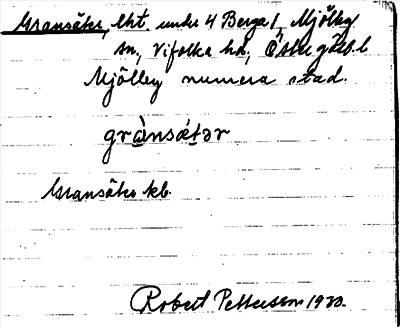 Gransäter, lht. under 4 Berga 1, Mjölby
sn, Vifolka hd, Östergötl. l
Mjölby numera stad.
grànsǽtər
Gransäter kb.
Robert Pettersson 1923.